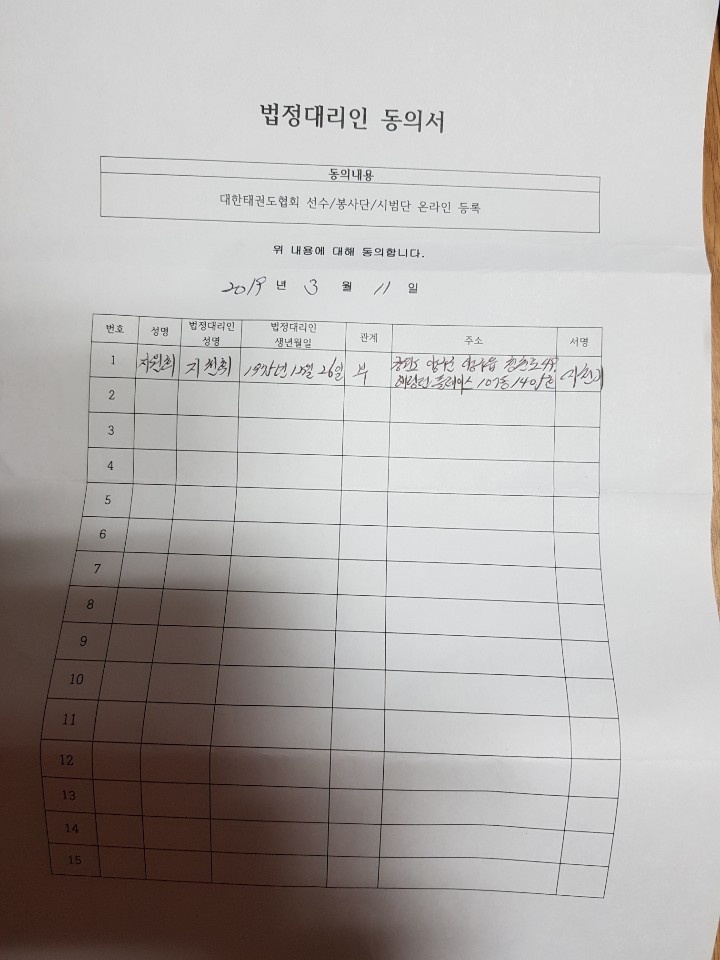 법정대리인 동의서
동의내용
대한태권도협회 선수/봉사단/시범단 온라인 등록
위 내용에 대해 동의합니다.
2019 년 3 월 11 일
번호 성명 법정대리인 성명 법정대리인 생년월일 관계 주소 서명
1 지원희 지 천희 12월 26일 부
107동
2
3
4
5
6
7
8
9
10
11
12
13
14
15